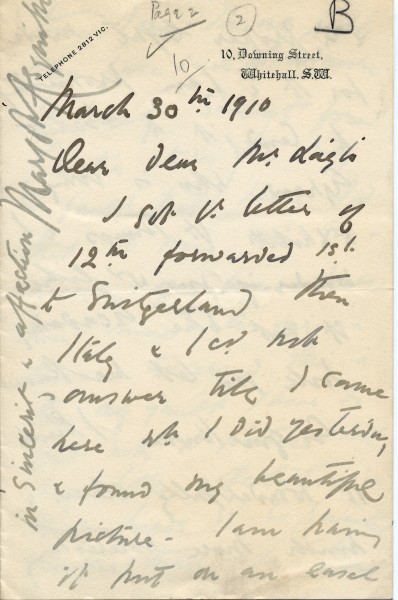 Page 2
2
B
10
TELEPHONE 2812 VIC.
10, Downing Street,
Whitehall, S.W.
March 30th 1910
Dear Dear Mr
I got yr letter of
12th forwarded 1st
to Switzerland then
Italy & I cd not
answer till I came
here wh I did yesterday,
& found my beautiful
picture - I am having
it put on an easel
in sincerest affection Margot Asquith